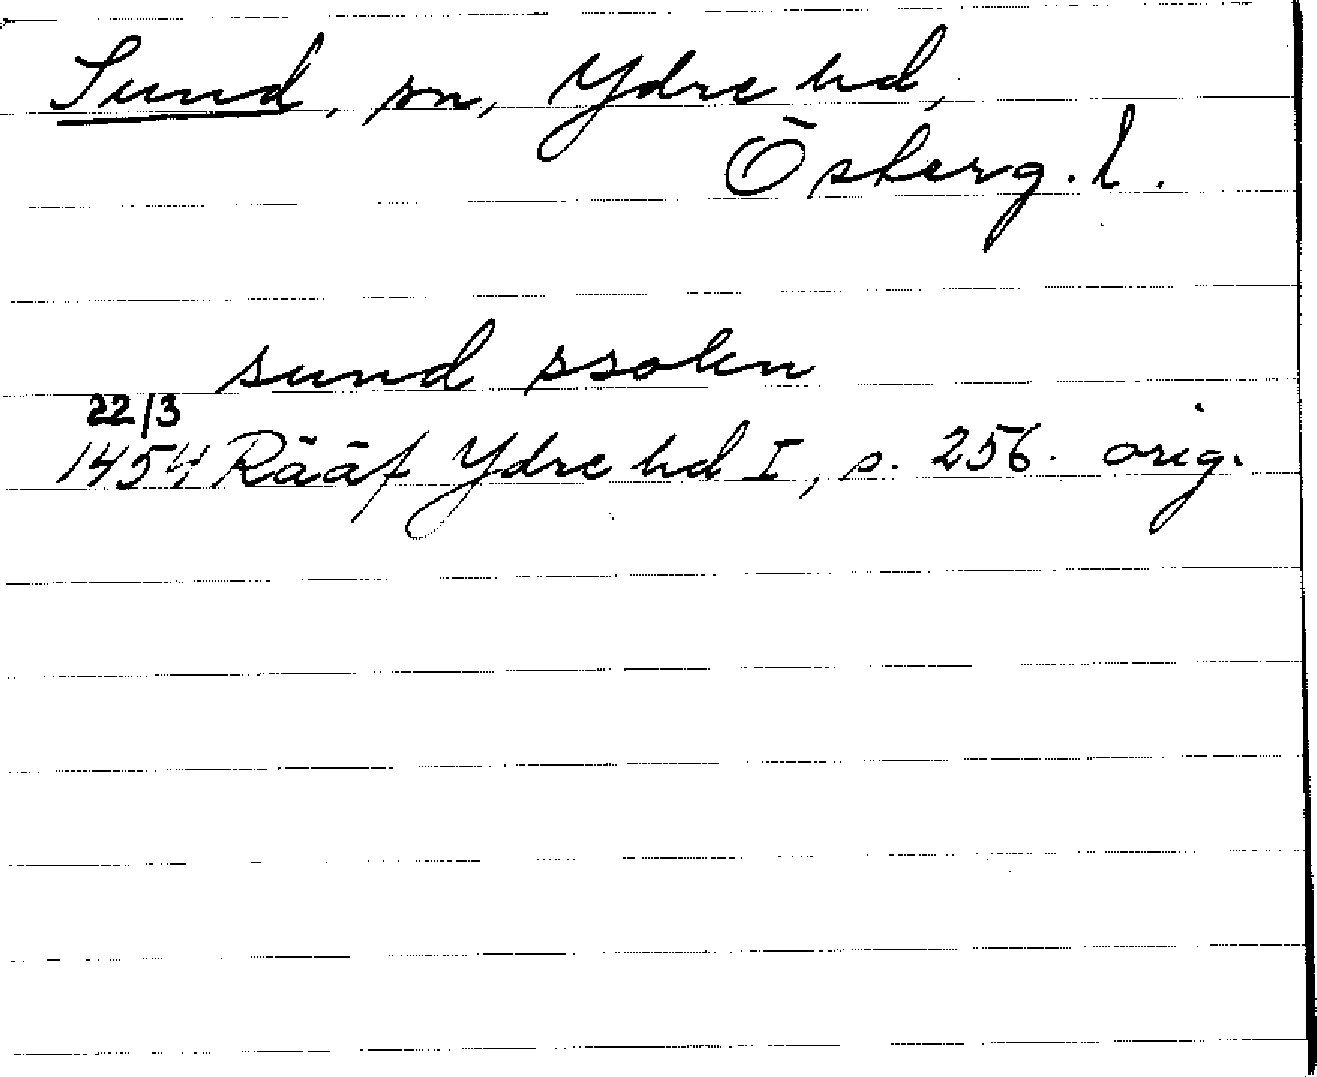 Sund, sn, Ydre hd,
Österg. l.
sund ssokn
22/3
1454 Rääf Ydre hd I, s. 256. orig.